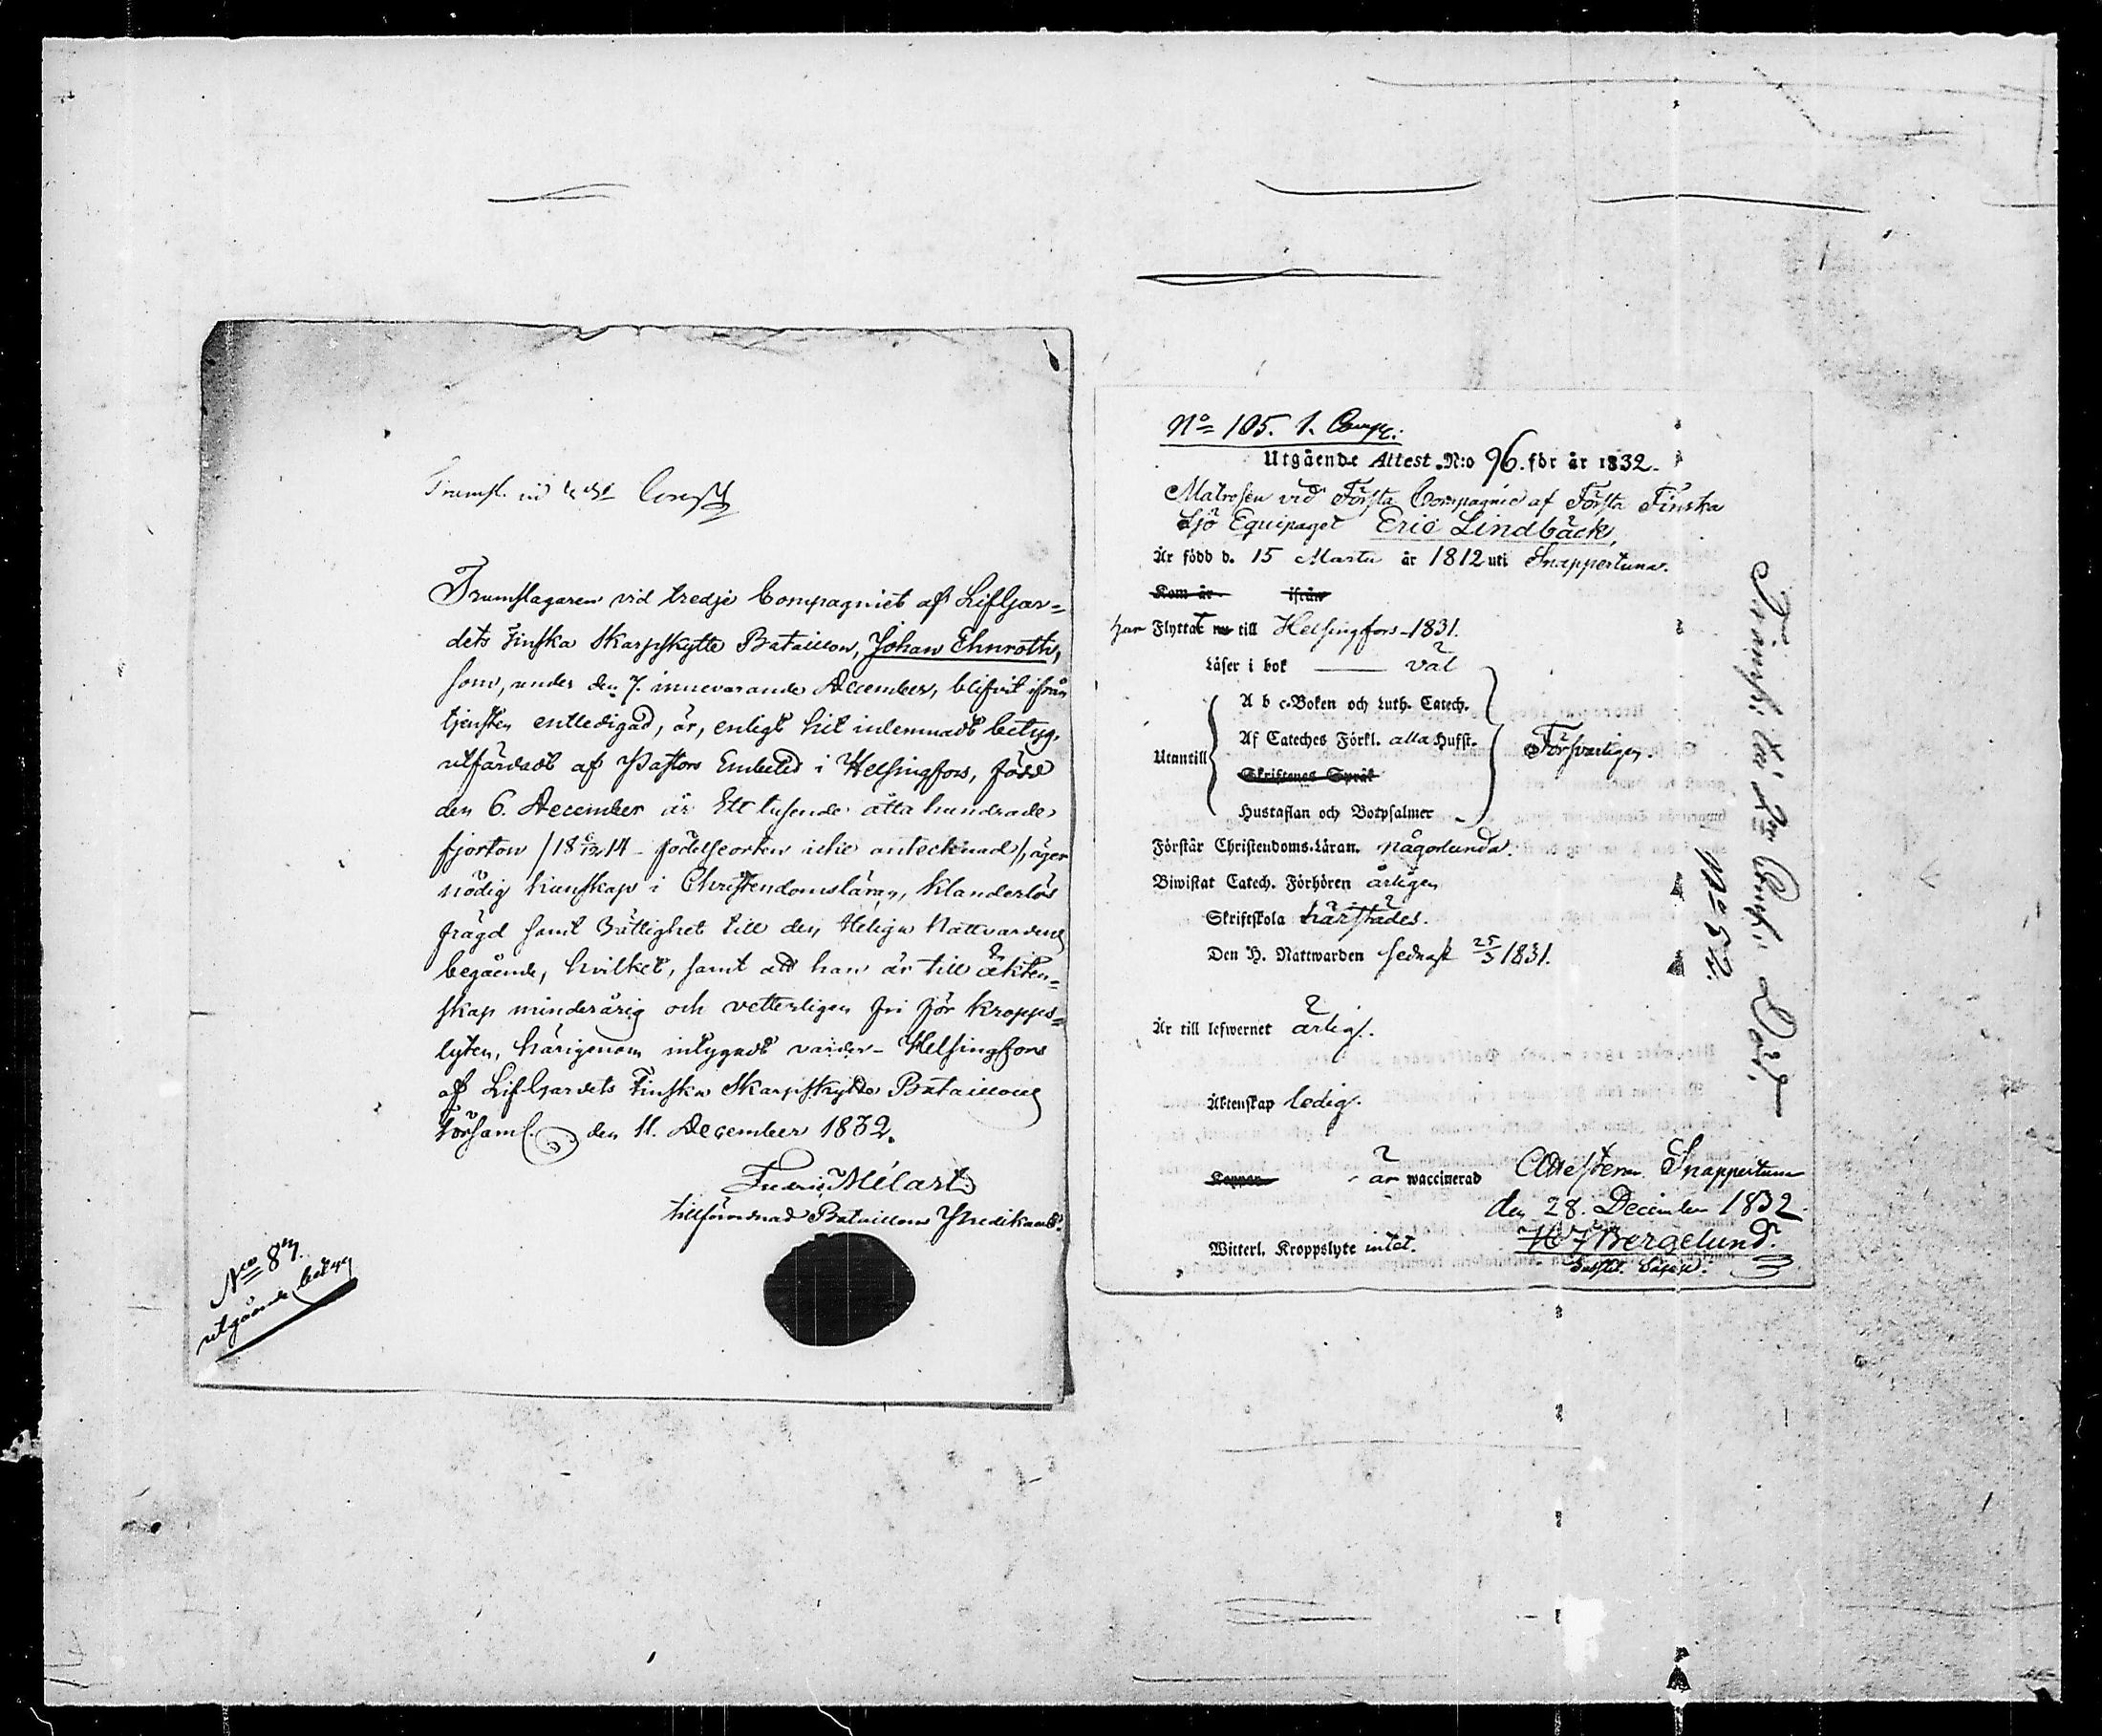 Trumsl. vid Comp
Trumslagaren vid tredje Compagniet af LifGar=
dets Finska Skarpskytte Bataillon, Johan Ehnroth,
som, under den 7. innevarande December, blifvit ifrån
tjensten entledigad, är, enligt hit inlemnadt betyg,
utfärdadt af Pastors Embetet i Helsingfors, född
den 6. December år Ett tusende åtta hundrade
fjorton /18 6/12 14 - födelseorten icke antecknad/, äger
nödig kunskap i Christendomsläran, klanderlös
frägd samt rättighet till den Heliga Nattvardens
begående, hvilket, samt att han är till äkten=
skap minderårig och vetterligen fri för kropps=
lyten, härigenom intygadt varder - Helsingfors
af LifGardets Finska Skarpskytte Bataillons
Församl. den 11. December 1832.
Melart
tillförordnad Bataillons Predikant.
No 87.
utgående betyg
No 105. 1. Comp:
Utgående Attest N:o 96. för år 1832.
Matrosen vid Första Compagnie af Första Finska
Sjö Equipaget Eric Lindbäck,
Är född d. 15 Martii år 1812 uti Snappertuna.
Kom år ifrån
har Flyttat nu till Helsingfors - 1831.
Läser i bok väl
A b c-Boken och Luth. Catech.
Af Cateches Förkl. alla Hufst.
Utantill Försvarligen.
Skriftenes Språk
Hustaflan och Botpsalmer
Förstår Christendoms-Läran. någorlunda.
Biwistat Catech. Förhören årligen
Skriftskola härstädes.
Den H. Nattwarden sednast 25/3 1831.
Är till lefwernet ärlig.
Äktenskap ledig.
Koppor är waccinerad
Attesterar Snappertuna
den 28. December 1832.
Witterl. Kroppslyte intet.
Bergelund.
No 52.